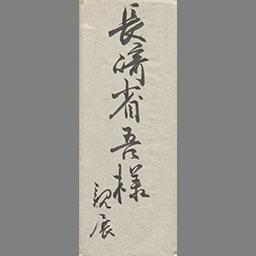 長崎省吾様
親展